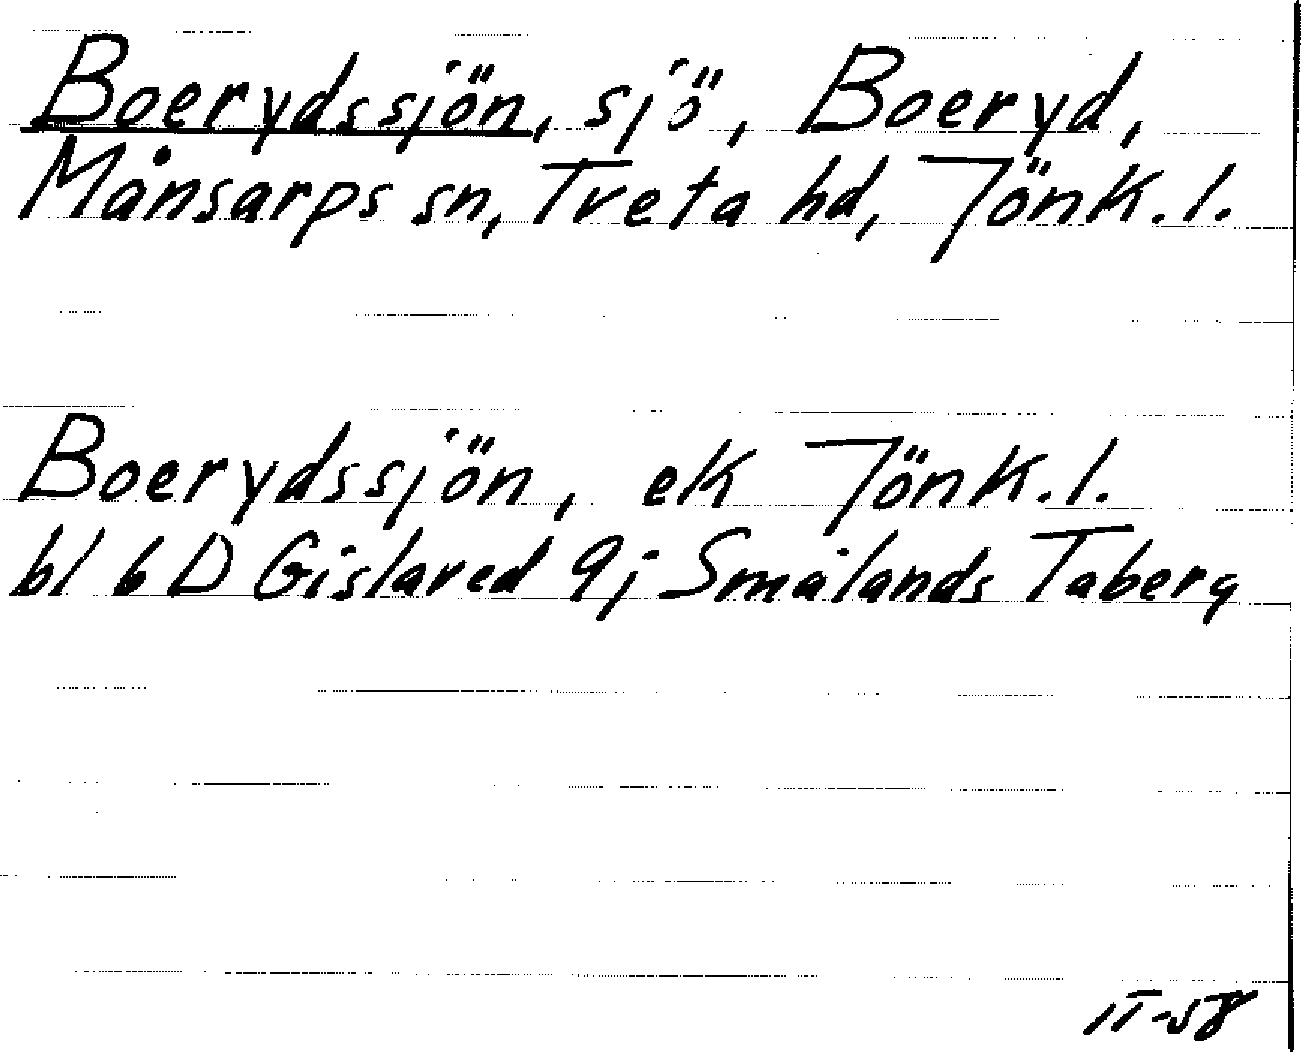 Boerydssjön, sjö, Boeryd,
Månsarps sn, Tveta hd, Jönk. l.
Boerydssjön, ek Jönk. l.
bl 6 D Gislaved 9j Smålands Taberg